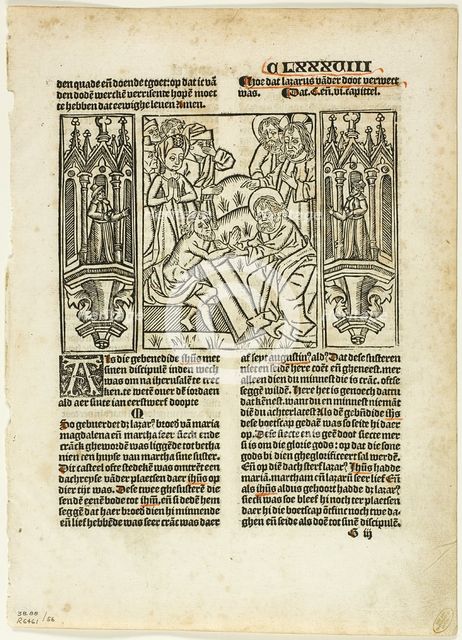 C LXXXCIII
den quade eñ doende tgoet: op dat ic vā
den dodē werckē verrisentē hopē moet
te hebben dat eewighe leuen Amen.
¶ Hoe dat lazarus vāder doot verwect
was. ¶ Dat .C. eñ .vi. capittel.
Als die gebenedide ihūs met
sinen discipulē inden wech
was om na iherusalē te trec
ken. te wetē ouer dē iordaen
ald aer sinte ian eerstwerf doopte
So gebuerdet dz lazar⁹ broed' vā maria
magdalena eñ martha seer siec eñ
cranck ghewordē was liggēde tot betha
nien een huyse van martha sine suster.
Dit casteel ofte stedekē was omtrēt een
dachreyse vāder plaetsen daer ihūs op
dier tijt was. Dese twe ghesusterē die
sendē bode tot ihm̄, eñ si dedē hem
seggē dat haer broed' dien hi minnende
eñ lief hebbēde was seer crāc was daer
af seyt augustin⁹ aldus Dat dese susteren
niet en seidē here coēt eñ gheneest. mer
alleen dien du minnest die is crāc. oft se
seggē wildē. Here het is genoech dattu
dat kēnest. want du en minneste niemāt
diē du achterlatest Als dē gebñdidē ihs
dese boetscap gedaē was so seide hi daer
op. Dese siecte en is gheē doot siecte mer
si is om die glorie gods: op dat die sone
gods bi dien gheglorificeert sal werdē.
Eñ op diē dach sterf lazar⁹ Ihūs hadde
mariā. marthaın eñ lazarū seer lief Eñ
als ihūs aldus gehoort hadde dz lazar⁹
sieck was soe bleef hi noch ter plaetsen
daer hi die boetscap ōtfinc noch twe da-
ghen eñ seide als doē tot sinē discipulē.
G iij
38.88
R6461/56